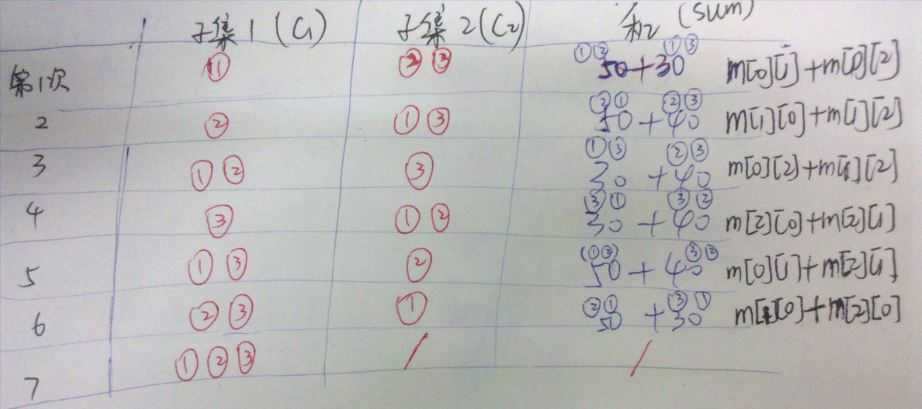 子集1(C1) 子集2(C2) 和(sum)
第1次 ① ②③ ①②50+①③30 m[0][1]+m[0][2]
2 ② ①③ ②①50+②③40 m[1][0]+m[1][2]
3 ①② ③ ①③30+②③40 m[0][2]+m[1][2]
4 ③ ①② ③①30+③②40 m[2][0]+m[2][1]
5 ①③ ② ①②50+③②40 m[0][1]+m[2][1]
6 ②③ ① ②①50+③①30 m[1][0]+m[2][0]
7 ①②③ / /